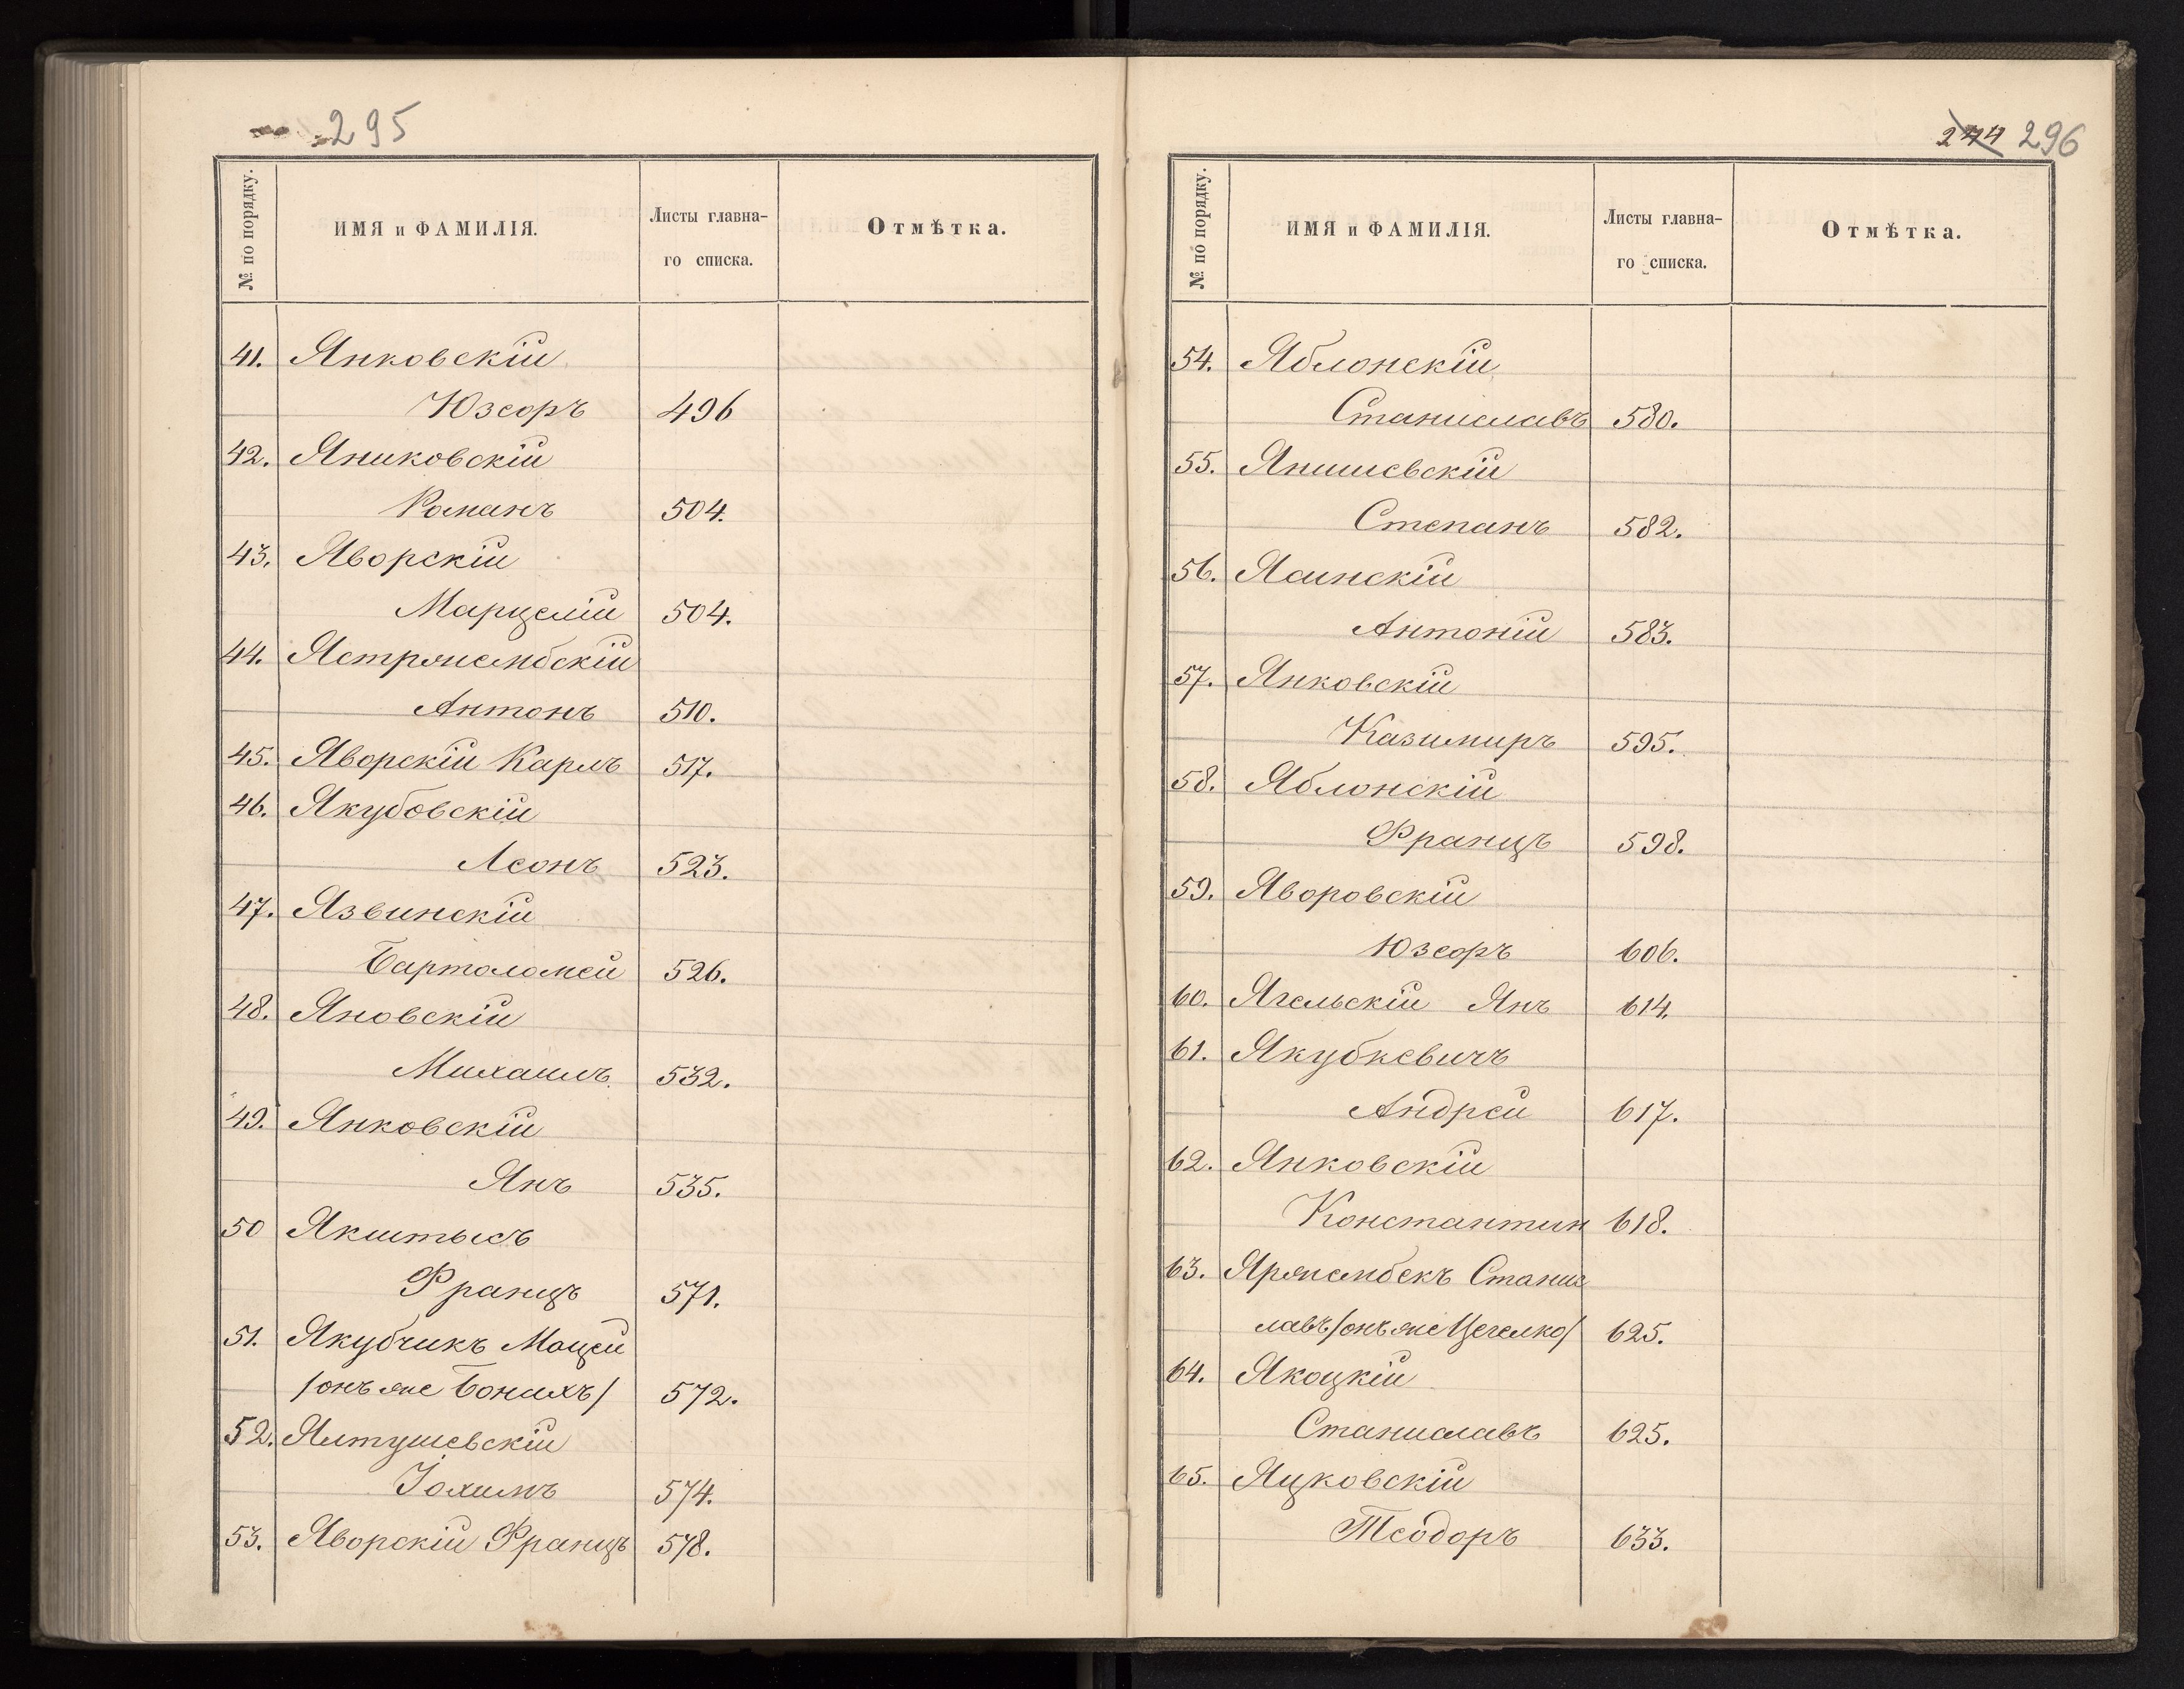 295
№ по порядку.
ИМЯ и ФАМИЛІЯ.
Листы главна-
го списка.
Отмѣтка.
41. Янковскій
Юзефъ 496
42. Яниковскій
Романъ 504.
43. Яворскій
Марцелій 504.
44. Ястржембскій
Антонъ 510.
45. Яворскій Карлъ 517.
46. Якубовскій
Леонъ 523.
47. Язвинскій
Бартоломей 526.
48. Яновскій
Михаилъ 532.
49. Янковскій
Янъ 535.
50 Якштысъ
Францъ 571.
51. Якубчикъ Мацей
/онъ же Бонахъ/ 572.
52. Ялтушевскій
Іохимъ 574.
53. Яворскій Францъ 578.
244 296
№ по порядку.
ИМЯ и ФАМИЛІЯ.
Листы главна-
го списка.
Отмѣтка.
54. Яблонскій
Станиславъ 580.
55. Янишевскій
Степанъ 582.
56. Ясинскій
Антоній 583.
57. Янковскій
Казимиръ 595.
58. Яблонскій
Францъ 598.
59. Яворовскій
Юзефъ 606.
60. Ягельскій Янъ 614.
61. Якубкевичъ
Андрей 617.
62. Янковскій
Константин 618.
63. Яржембекъ Станис
лавъ/онъ же Цегелко/ 625.
64. Якоцкій
Станиславъ 625.
65. Яцковскій
Теодоръ 633.